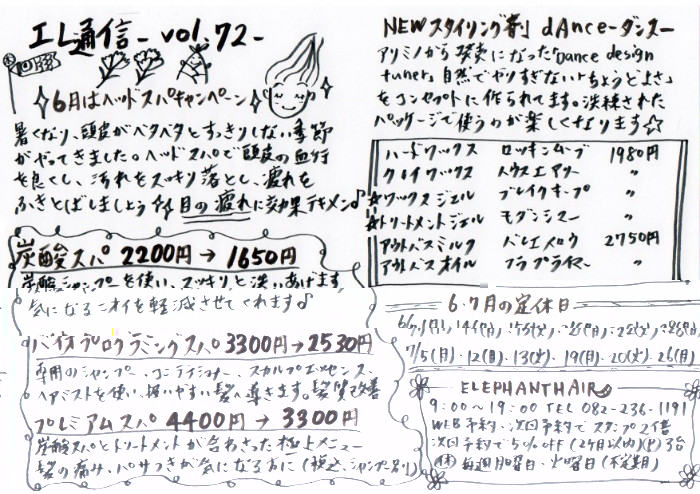 エレ通信 - vol.72-
6月はヘッドスパキャンペーン
暑くなり、頭皮がベタベタとすっきりしない季節
がやってきました。ヘッドスパで頭皮の血行
を良くし、汚れをスッキリ落とし、疲れを
ふきとばしましょう 目の疲れに効果テキメン♪
炭酸スパ 2200円→1650円
炭酸シャンプーを使い、スッキリと洗いあげます
気になるニオイを軽減させてくれます♪
バイオプログラミングスパ 3300円→2530円
専用のシャンプー、コンディショナー、スカルプエッセンス、
ヘアミストを使い、扱いやすい髪へ導きます。髪質改善
プレミアムスパ 4400円→3300円
炭酸スパとトリートメントが合わさった極上メニュー
髪の痛み、パサつきが気になる方に(税込、シャンプー別)
NEWスタイリング剤 dAnce-ダンス-
アリミノから発売になった「Dance design
tuner」自然でやりすぎない"ちょうどよさ"
をコンセプトに作られてます。洗練された
パッケージで使うのが楽しくなります☆
ハードワックス ロッキンムーブ 1980円
クレイワックス ハウスエアリー 〃
☆ワックスジェル ブレイクキープ 〃
☆トリートメントジェル モダンシスー 〃
アウトバスミルク バレエメロウ 2750円
アウトバスオイル フラプライマー 〃
6.7月の定休日
7/5(月)・12(月)・13(火)・19(月)・20(火)・26(月)
ELEPHANTHAIR
9:00〜19:00 TEL 082-236-1191
WEB予約・次回予約でスタンプ2倍
次回予約で5%off(2ヶ月以内)(P)3台
(休)毎週月曜日・火曜日(不定期)